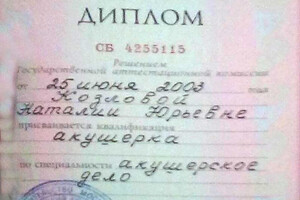 ДИПЛОМ
СБ 4255115
Решением
Государственной аттестационной комиссии
от 25 июня 2003 года
Козловой
Наталии Юрьевне
присваивается квалификация
акушерка
по специальности акушерское
дело